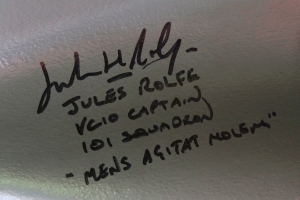 Jules H Rolfe
JULES ROLFE
VC10 CAPTAIN
101 SQUADRON
"MENS AGITAT MOLEM"